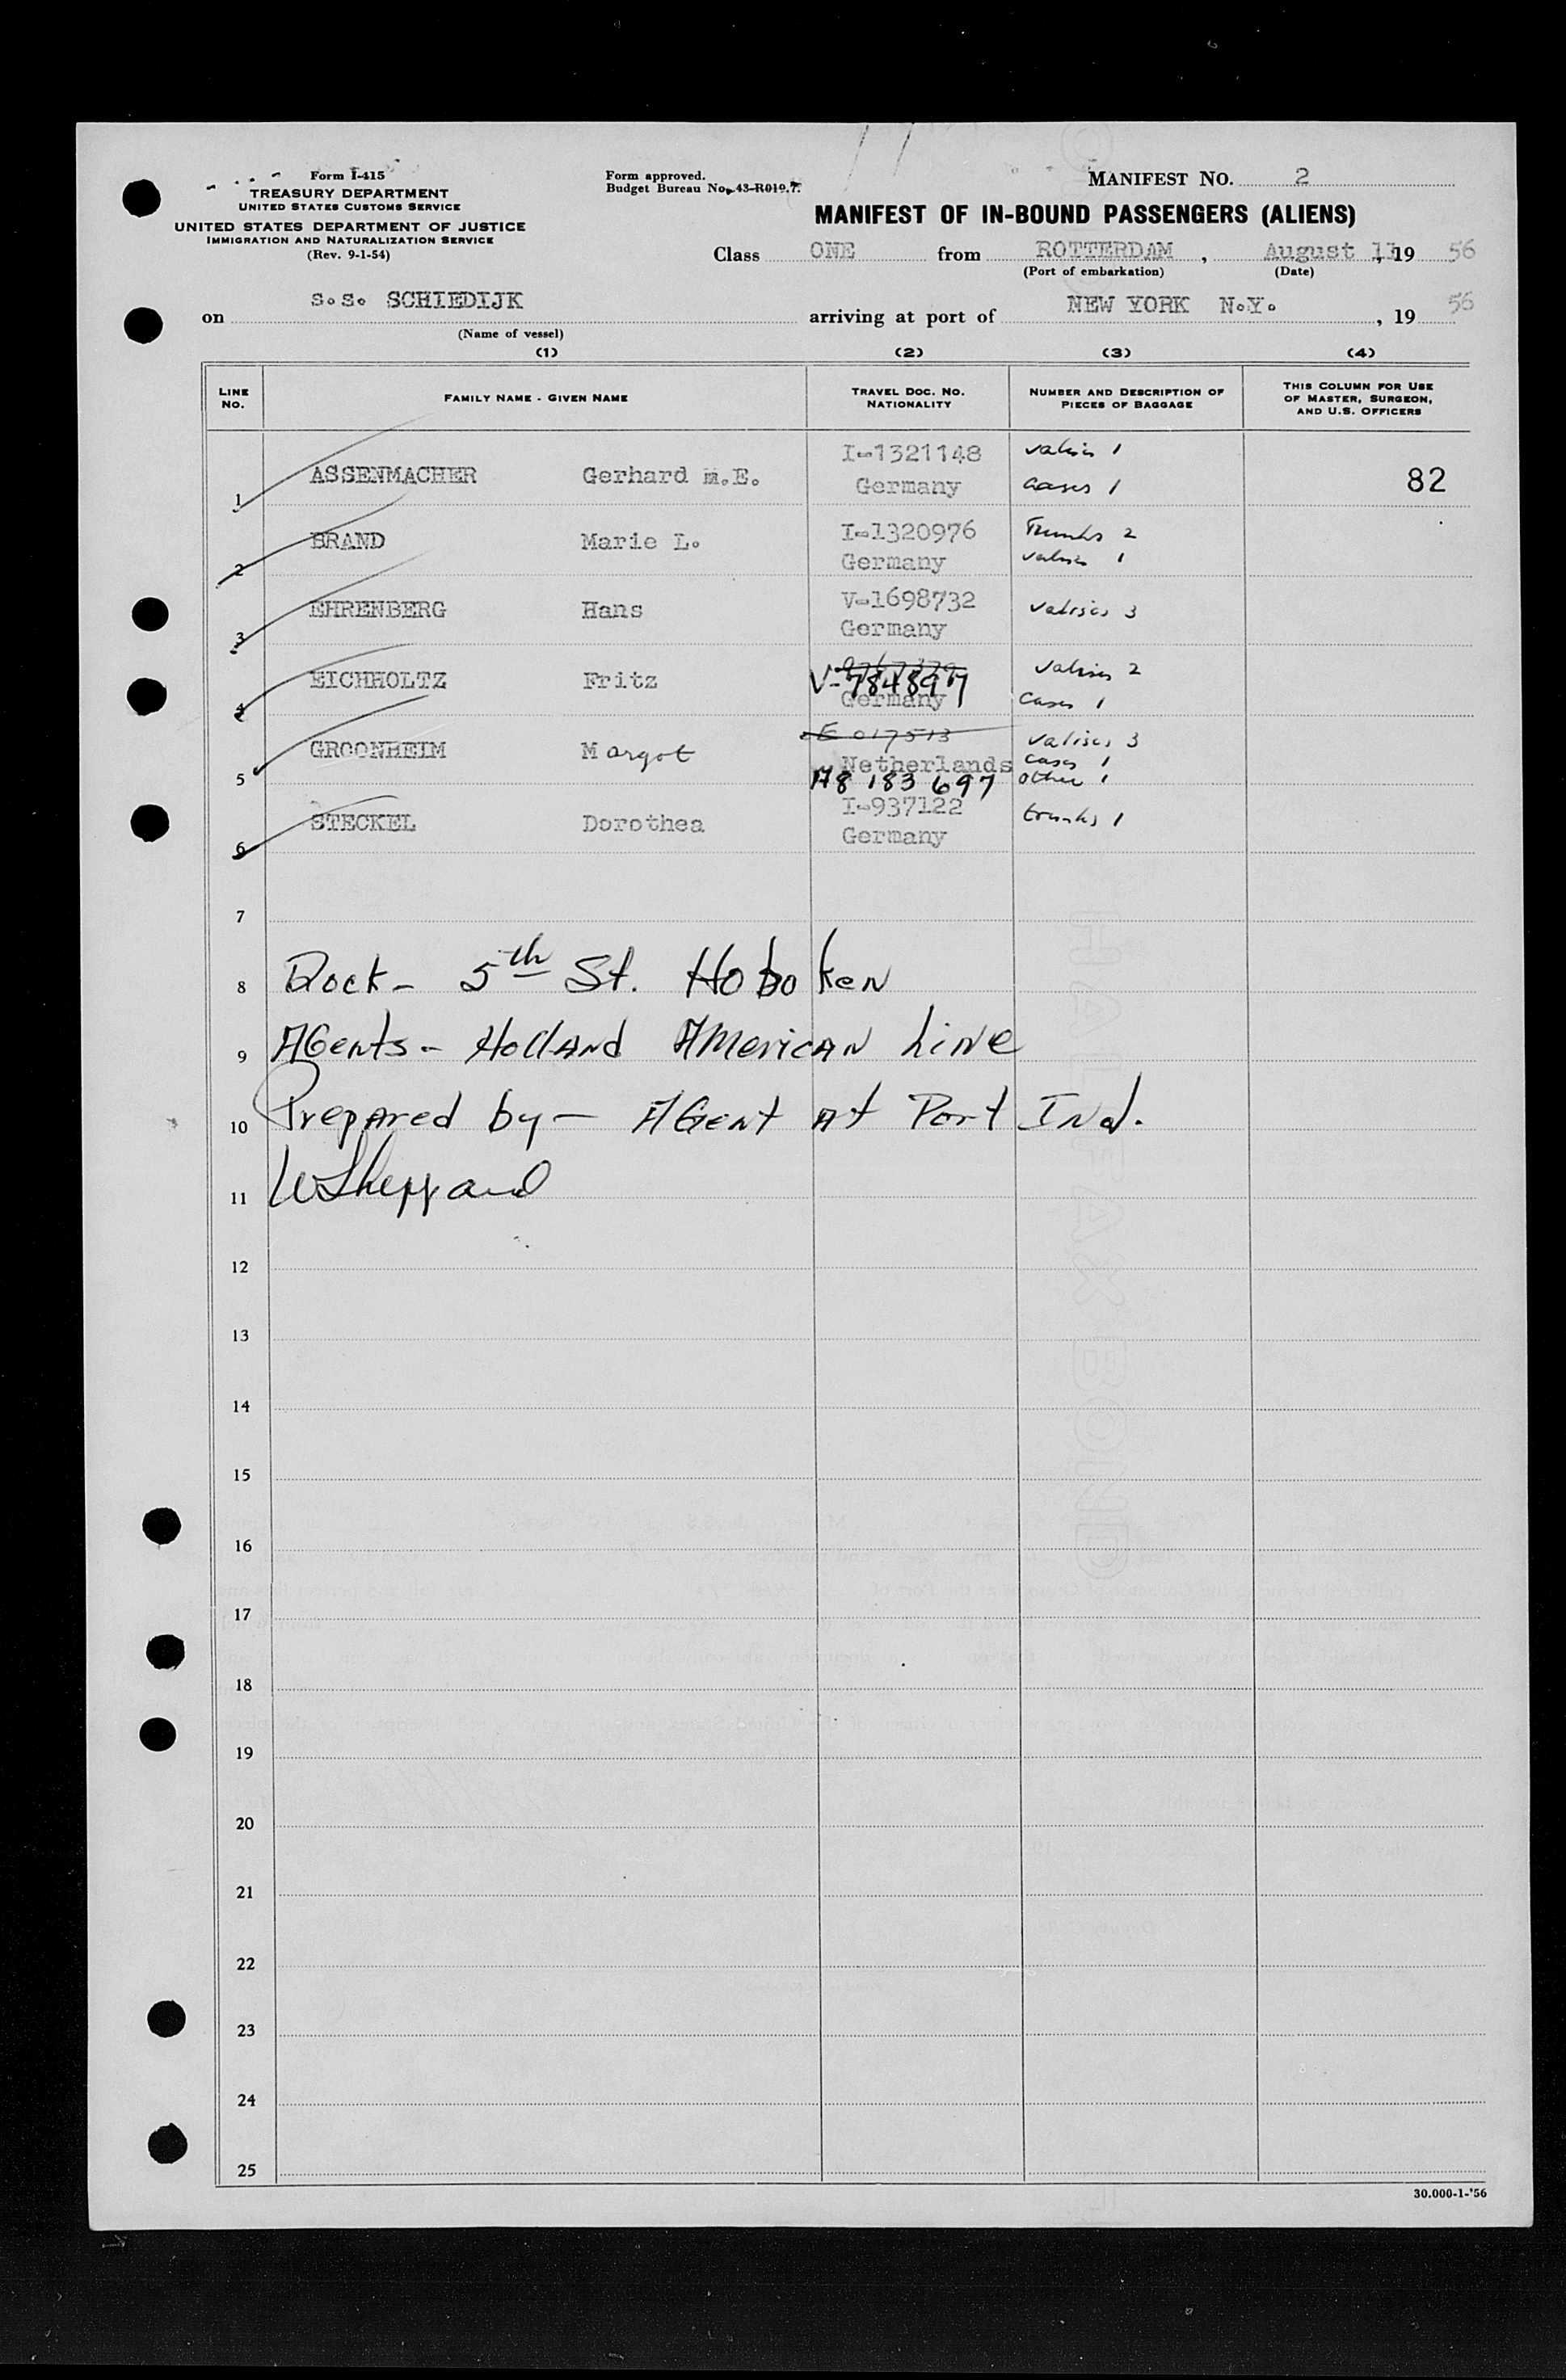 Form I-415
TREASURY DEPARTMENT
UNITED STATES CUSTOMS SERVICE
UNITED STATES DEPARTMENT OF JUSTICE
IMMIGRATION AND NATURALIZATION SERVICE
(Rev. 9-1-54)
Form approved.
Budget Bureau No. 43-R019.7.
MANIFEST NO. 2
MANIFEST OF IN-BOUND PASSENGERS (ALIENS)
Class ONE from ROTTERDAM, August 11, 19 56
(Port of embarkation) (Date)
on S.S. SCHIEDIJK arriving at port of NEW YORK N.Y., 19 56
(Name of vessel)
(1) (2) (3) (4)
LINE NO. FAMILY NAME - GIVEN NAME TRAVEL DOC. NO. NATIONALITY NUMBER AND DESCRIPTION OF PIECES OF BAGGAGE THIS COLUMN FOR USE OF MASTER, SURGEON, AND U.S. OFFICERS
1 ASSENMACHER Gerhard M.E. I-1321148 Germany valises 1 cases 1 82
2 BRAND Marie L. I-1320976 Germany Trunks 2 valises 1
3 EHRENBERG Hans V-1698732 Germany valises 3
4 EICHHOLTZ Fritz V-784897 Germany valises 2 cases 1
5 GROONHEIM Margot E 017513 Netherlands A8 183 697 valises 3 cases 1 other 1
6 STECKEL Dorothea I-937122 Germany trunks 1
7
8 Dock - 5th St. Hoboken
9 AGents - Holland American Line
10 Prepared by - AGent At Port Ind.
11 W Sheppard
12
13
14
15
16
17
18
19
20
21
22
23
24
25
30.000-1-'56